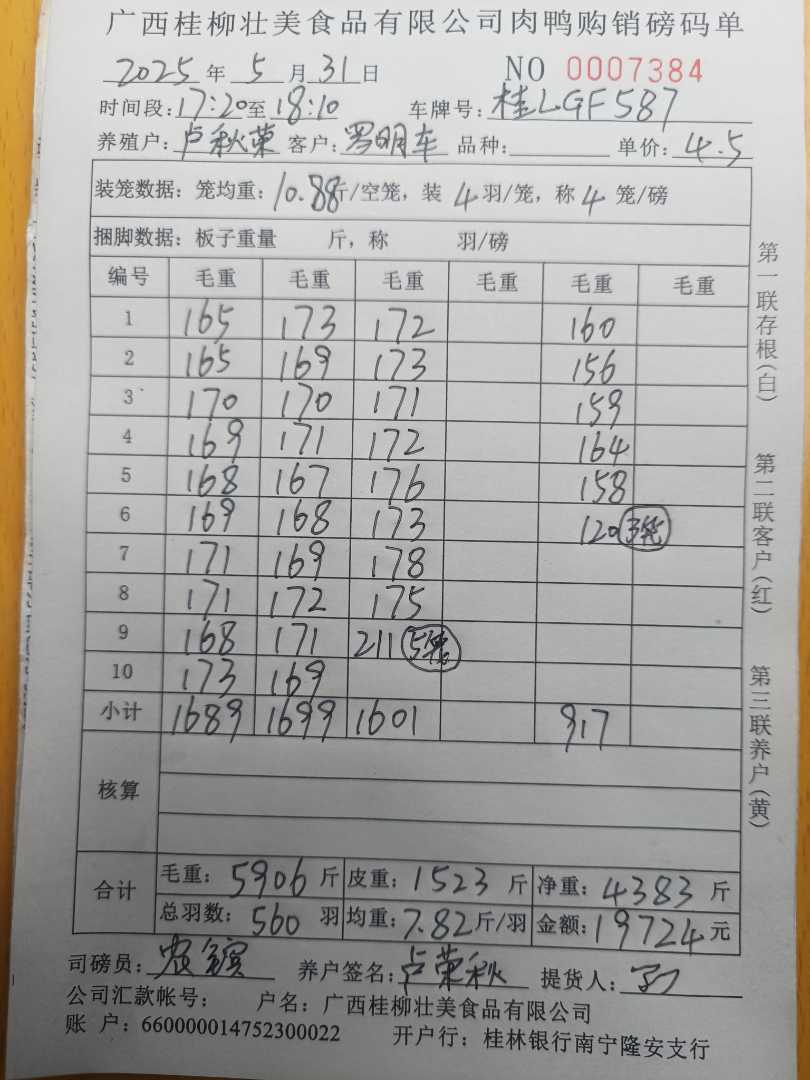 广西桂柳壮美食品有限公司肉鸭购销磅码单
2025年5月31日 NO 0007384
时间段:17:20至18:10 车牌号:桂LGF587
养殖户:卢秋荣 客户:罗明车 品种: 单价:4.5
装笼数据:笼均重:10.88斤/空笼,装4羽/笼,称4笼/磅
捆脚数据:板子重量 斤,称 羽/磅
编号 毛重 毛重 毛重 毛重 毛重 毛重
1 165 173 172 160
2 165 169 173 156
3 170 170 171 159
4 169 171 172 164
5 168 167 176 158
6 169 168 173 120 3笼
7 171 169 178
8 171 172 175
9 168 171 211 5笼
10 173 169
小计 1689 1699 1601 917
核算
合计 毛重:5906斤 皮重:1523斤 净重:4383斤
总羽数:560羽 均重:7.82斤/羽 金额:19724元
司磅员: 养户签名:卢荣秋 提货人:
公司汇款帐号: 户名:广西桂柳壮美食品有限公司
账 户:660000014752300022 开户行:桂林银行南宁隆安支行
第一联存根(白)
第二联客户(红)
第三联养户(黄)